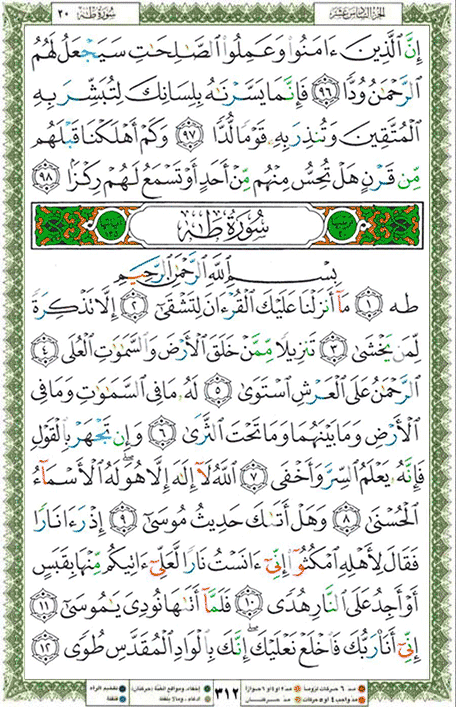 سُورَةُ طه ٢٠
الجزء السادس عشر
إِنَّ ٱلَّذِينَ ءَامَنُوا۟ وَعَمِلُوا۟ ٱلصَّٰلِحَٰتِ سَيَجْعَلُ لَهُمُ
ٱلرَّحْمَٰنُ وُدًّا ٩٦ فَإِنَّمَا يَسَّرْنَٰهُ بِلِسَانِكَ لِتُبَشِّرَ بِهِ
ٱلْمُتَّقِينَ وَتُنذِرَ بِهِۦ قَوْمًا لُّدًّا ٩٧ وَكَمْ أَهْلَكْنَا قَبْلَهُم
مِّن قَرْنٍ هَلْ تُحِسُّ مِنْهُم مِّنْ أَحَدٍ أَوْ تَسْمَعُ لَهُمْ رِكْزًۢا ٩٨
سُورَةُ طه
بِسْمِ ٱللَّهِ ٱلرَّحْمَٰنِ ٱلرَّحِيمِ
طه ١ مَآ أَنزَلْنَا عَلَيْكَ ٱلْقُرْءَانَ لِتَشْقَىٰٓ ٢ إِلَّا تَذْكِرَةً
لِّمَن يَخْشَىٰ ٣ تَنزِيلًا مِّمَّنْ خَلَقَ ٱلْأَرْضَ وَٱلسَّمَٰوَٰتِ ٱلْعُلَى ٤
ٱلرَّحْمَٰنُ عَلَى ٱلْعَرْشِ ٱسْتَوَىٰ ٥ لَهُۥ مَا فِى ٱلسَّمَٰوَٰتِ وَمَا فِى
ٱلْأَرْضِ وَمَا بَيْنَهُمَا وَمَا تَحْتَ ٱلثَّرَىٰ ٦ وَإِن تَجْهَرْ بِٱلْقَوْلِ
فَإِنَّهُۥ يَعْلَمُ ٱلسِّرَّ وَأَخْفَى ٧ ٱللَّهُ لَآ إِلَٰهَ إِلَّا هُوَ ۖ لَهُ ٱلْأَسْمَآءُ
ٱلْحُسْنَىٰ ٨ وَهَلْ أَتَىٰكَ حَدِيثُ مُوسَىٰٓ ٩ إِذْ رَءَا نَارًا
فَقَالَ لِأَهْلِهِ ٱمْكُثُوٓا۟ إِنِّىٓ ءَانَسْتُ نَارًا لَّعَلِّىٓ ءَاتِيكُم مِّنْهَا بِقَبَسٍ
أَوْ أَجِدُ عَلَى ٱلنَّارِ هُدًى ١٠ فَلَمَّآ أَتَىٰهَا نُودِىَ يَٰمُوسَىٰٓ ١١
إِنِّىٓ أَنَا۠ رَبُّكَ فَٱخْلَعْ نَعْلَيْكَ ۖ إِنَّكَ بِٱلْوَادِ ٱلْمُقَدَّسِ طُوًى ١٢
٣١٢